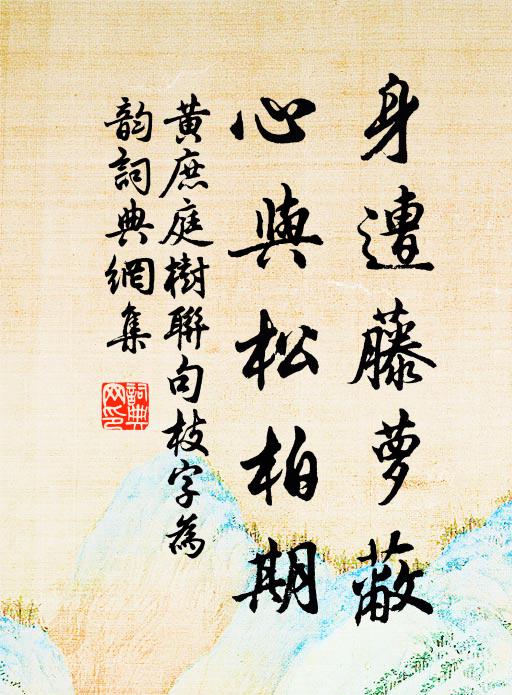 身遭藤萝蔽
心與松柏期
黄庶庭樹聯句枝字為
韵詞典網集
詞典網印